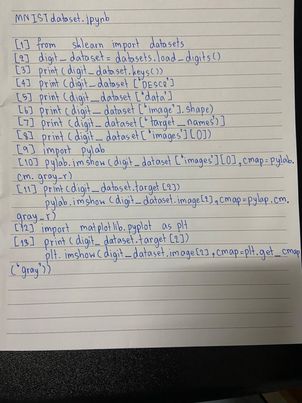 MNIST dataset.ipynb
[1] from sklearn import datasets
[2] digit_dataset = datasets.load_digits()
[3] print(digit_dataset.keys())
[4] print(digit_dataset['DESCR']
[5] print(digit_dataset['data']
[6] print(digit_dataset['image'].shape)
[7] print(digit_dataset['target_names')]
[8] print(digit_dataset['images'][0])
[9] import pylab
[10] pylab.imshow(digit_dataset['images'][0],cmap=pylab.
cm.gray_r)
[11] print(digit_dataset.target[2])
pylab.imshow(digit_dataset.image[2],cmap=pylap.cm.
gray_r)
[12] import matplotlib.pyplot as plt
[13] print(digit_dataset.target[2])
plt.imshow(digit_dataset.image[2],cmap=plt.get_cmap
("gray"))